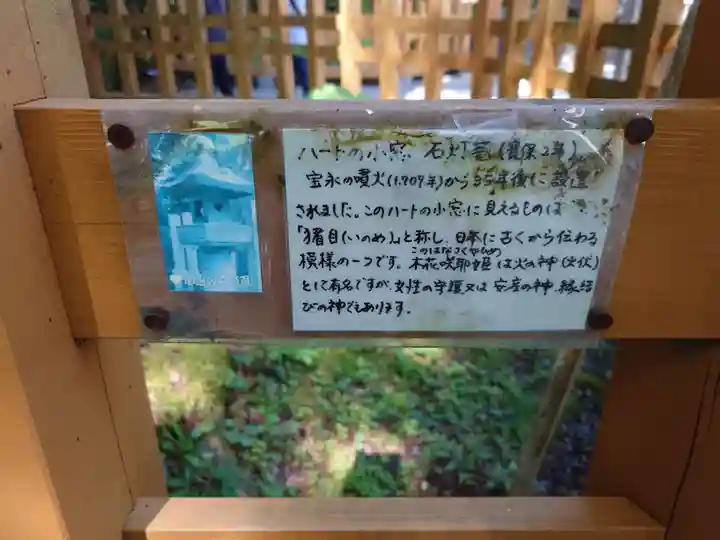 ハートの小窓 石灯篭(寛保2年)
宝永の噴火(1,707年)から35年後に設置
されました。このハートの小窓に見えるものは
「猪目(いのめ)」と称し、日本に古くから伝わる
模様の一つです。木花咲耶姫は火の神(火伏)
このはなさくやひめ
として有名ですが、女性の守護又は安産の神、縁結
びの神でもあります。